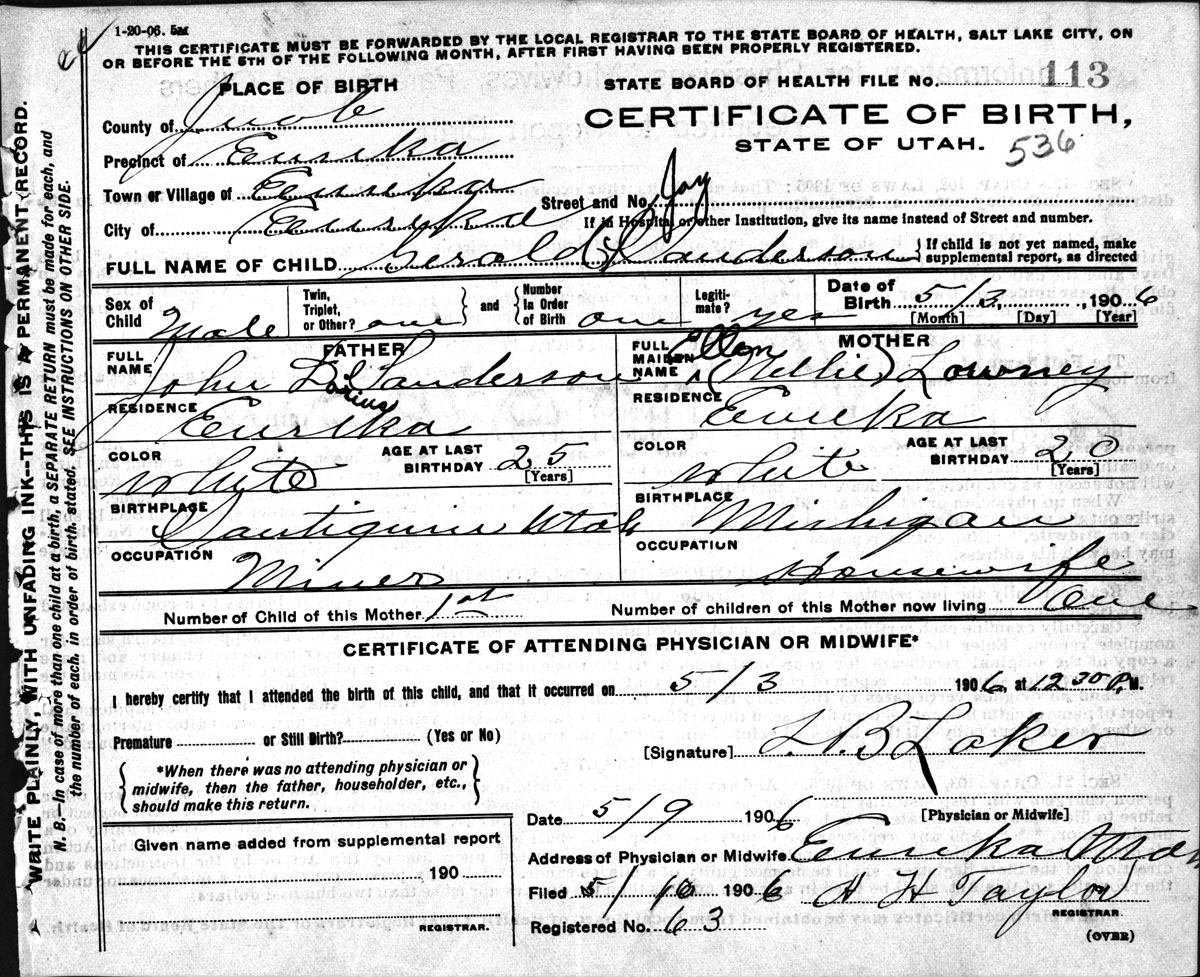 1-20-06. 5M
THIS CERTIFICATE MUST BE FORWARDED BY THE LOCAL REGISTRAR TO THE STATE BOARD OF HEALTH, SALT LAKE CITY, ON
OR BEFORE THE 5TH OF THE FOLLOWING MONTH, AFTER FIRST HAVING BEEN PROPERLY REGISTERED.
WRITE PLAINLY, WITH UNFADING INK--THIS IS A PERMANENT RECORD.
N. B.--In case of more than one child at a birth, a SEPARATE RETURN must be made for each, and
the number of each, in order of birth, stated. SEE INSTRUCTIONS ON OTHER SIDE.
PLACE OF BIRTH
County of Juab
Precinct of Eureka
Town or Village of Eureka
City of Eureka
STATE BOARD OF HEALTH FILE NO. 113
CERTIFICATE OF BIRTH,
STATE OF UTAH. 536
Street and No.
If in Hospital or other Institution, give its name instead of Street and number.
Jay
FULL NAME OF CHILD Gerald Sanderson { If child is not yet named, make
supplemental report, as directed
Sex of Child Male
Twin, Triplet, or Other? one } and { Number In Order of Birth one
Legiti-mate? yes
Date of Birth 5/3, 1906
[Month] [Day] [Year]
FATHER
FULL NAME John L. Sanderson
RESIDENCE Eureka
COLOR White
AGE AT LAST BIRTHDAY 25 [Years]
BIRTHPLACE Santiquin Utah
OCCUPATION Miner
MOTHER
FULL MAIDEN NAME Ellen (Nellie) Lowney
RESIDENCE Eureka
COLOR White
AGE AT LAST BIRTHDAY 20 [Years]
BIRTHPLACE Mishigan
OCCUPATION Housewife
Number of Child of this Mother 1st Number of children of this Mother now living One
CERTIFICATE OF ATTENDING PHYSICIAN OR MIDWIFE*
I hereby certify that I attended the birth of this child, and that it occurred on 5/3 1906 at 12 30 P. M.
Premature or Still Birth? (Yes or No)
[Signature] L. B. Laker
{ *When there was no attending physician or
midwife, then the father, householder, etc.,
should make this return. }
Date 5/9 1906
[Physician or Midwife]
Given name added from supplemental report
190
REGISTRAR.
Address of Physician or Midwife Eureka Utah
Filed 5/10 1906 A H Taylor
REGISTRAR.
Registered No. 63
(OVER)